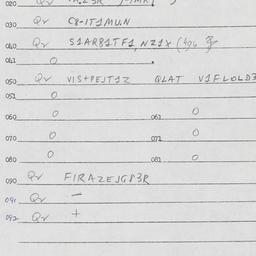 020 Qr
030 Qr C8-IT1MUN
040 Qr S1AR81TF1, NZ1X
041 O
050 Qr VIS+PEJT1Z QLAT V1FLOLD3
051 O
060 O 061 O
070 O 071 O
080 O 081 O
090 Qr FIRAZEJG83R
091 Qr —
092 Qr +